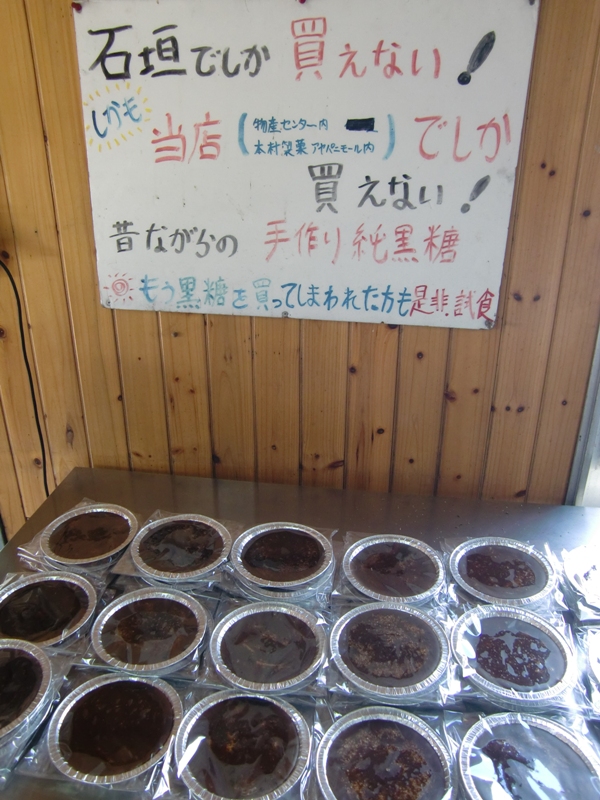 石垣でしか買えない!
しかも
当店(物産センター内
本村製菓アヤパニモール内)でしか
買えない!
昔ながらの 手作り純黒糖
もう黒糖を買ってしまわれた方も是非試食